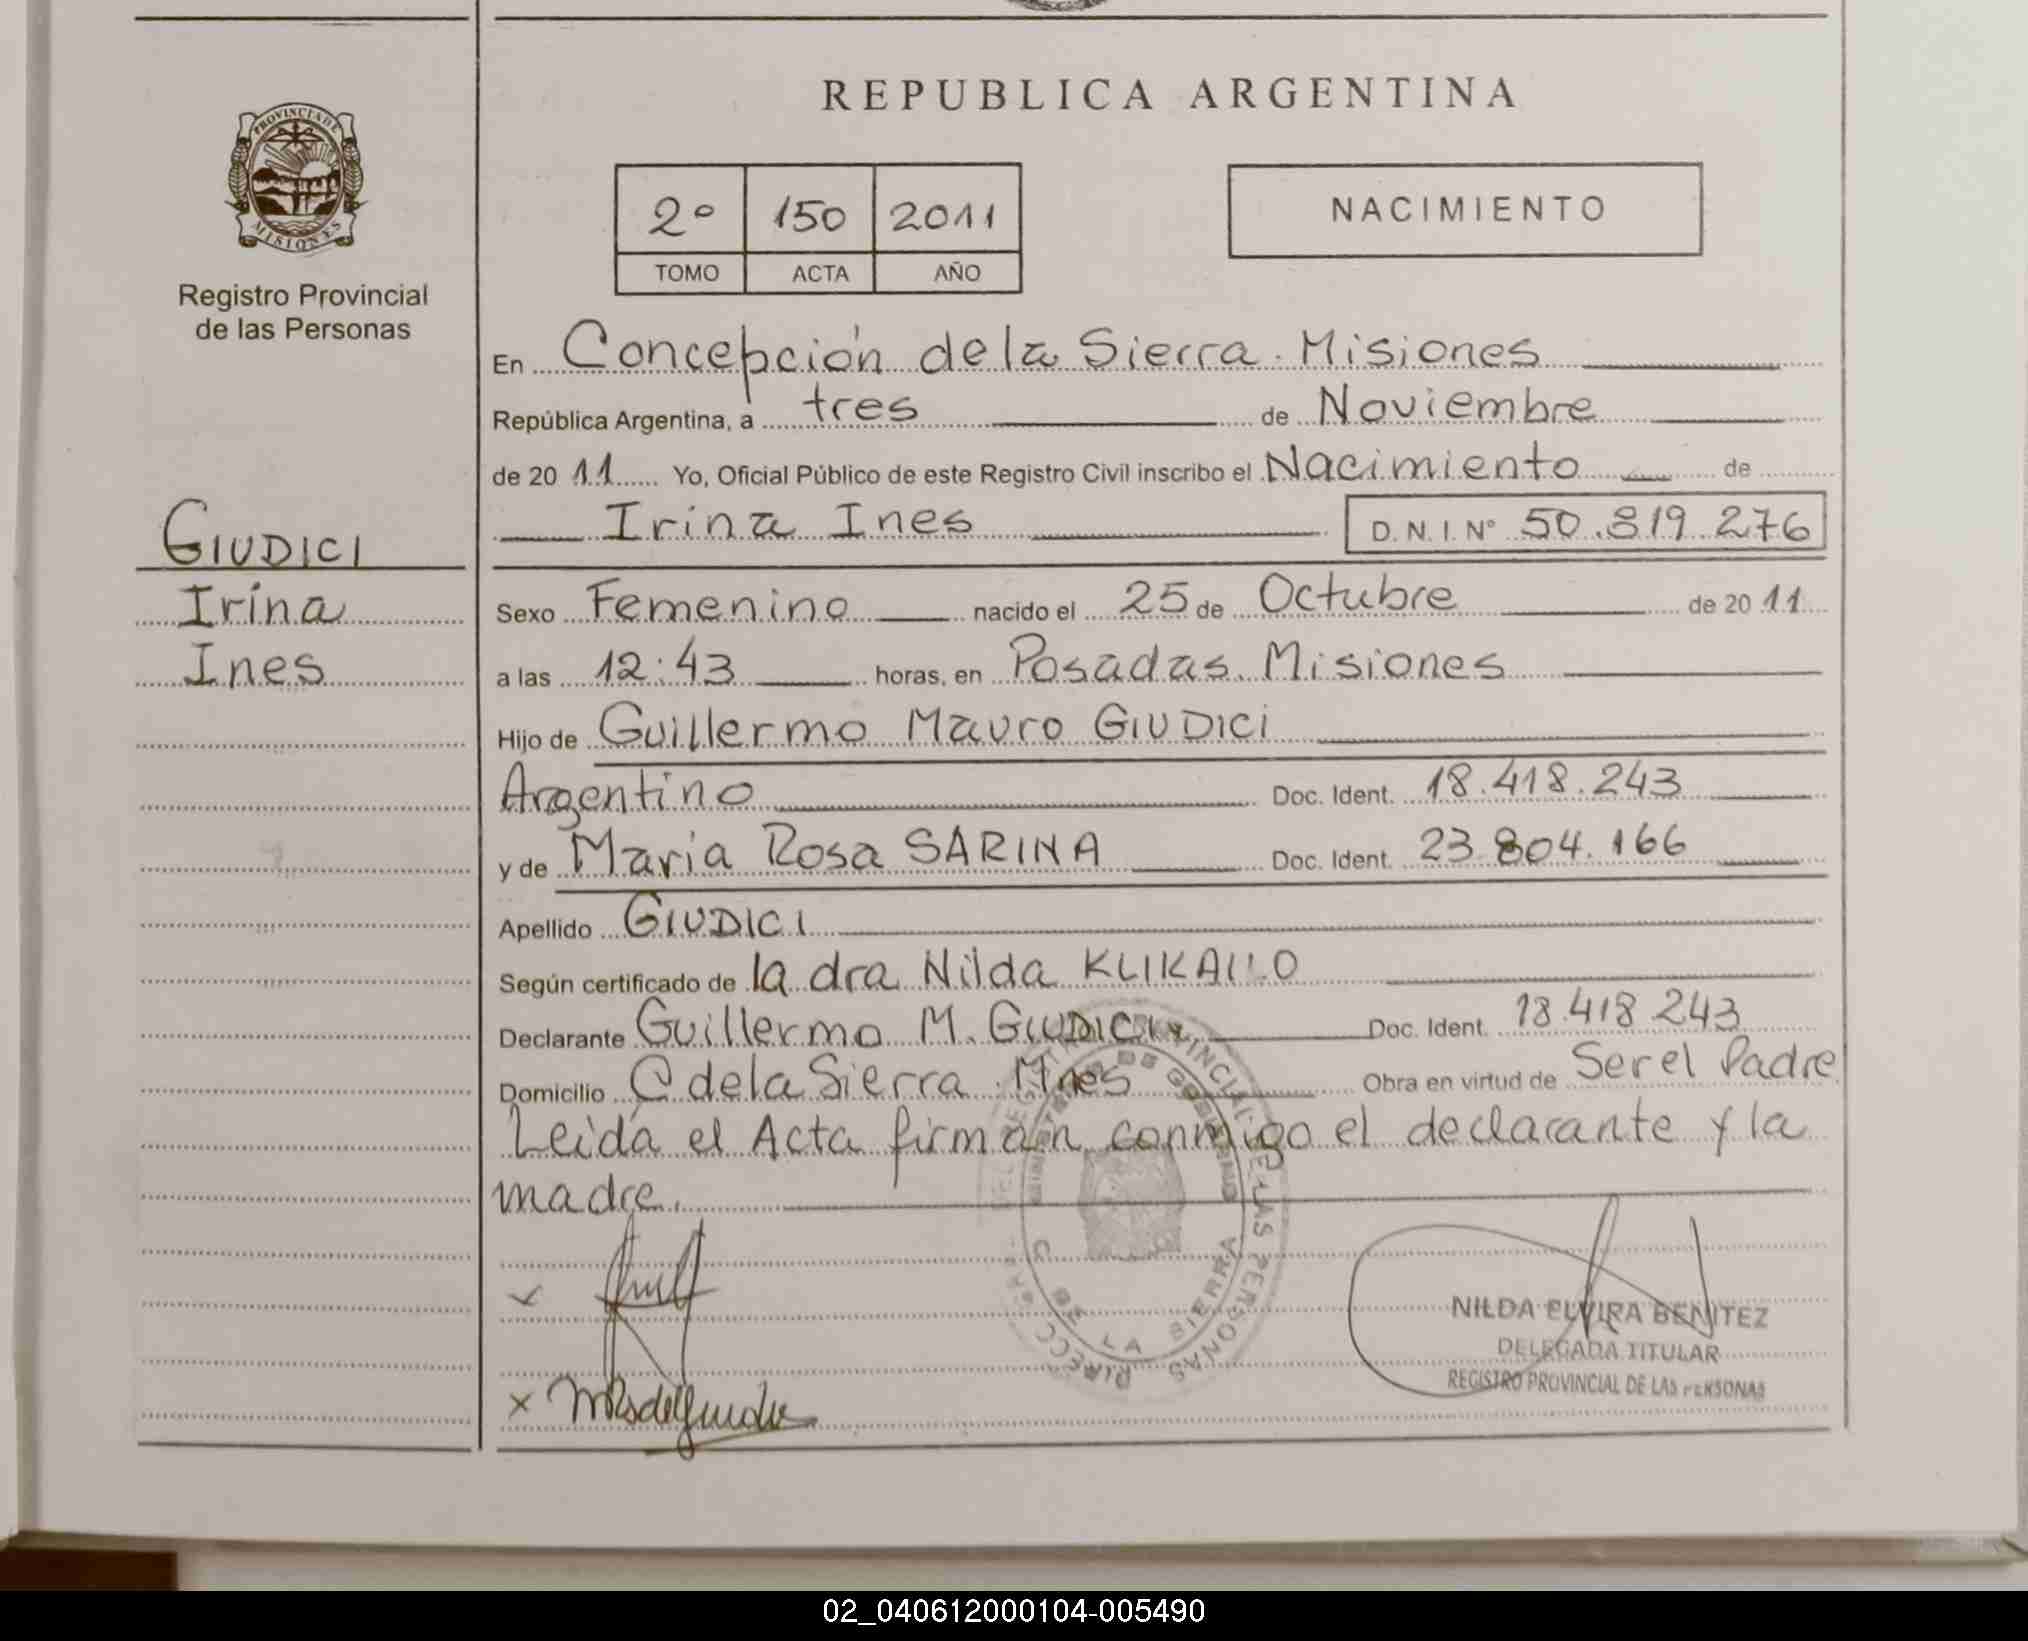 REPUBLICA ARGENTINA
PROVINCIA DE
MISIONES
Registro Provincial
de las Personas
2º 150 2011
TOMO ACTA AÑO
NACIMIENTO
En Concepción de la Sierra. Misiones
República Argentina, a tres de Noviembre
de 20 11 Yo, Oficial Público de este Registro Civil inscribo el Nacimiento de
Irina Ines D.N.I. Nº 50.819.276
GIUDICI
Irina
Ines
Sexo Femenino nacido el 25 de Octubre de 20 11
a las 12:43 horas, en Posadas. Misiones
Hijo de Guillermo Mauro GIUDICI
Argentino Doc. Ident. 18.418.243
y de Maria Rosa SARINA Doc. Ident. 23 804.166
Apellido GIUDICI
Según certificado de la dra Nilda
Declarante Guillermo M. GIUDICI Doc. Ident. 18.418 243
Domicilio C de la Sierra. Mnes Obra en virtud de Ser el Padre
Leida el Acta firman conmigo el declarante y la
madre.
C DE LA SIERRA
NILDA ELVIRA BENITEZ
DELEGADA TITULAR
REGISTRO PROVINCIAL DE LAS PERSONAS
02_040612000104-005490